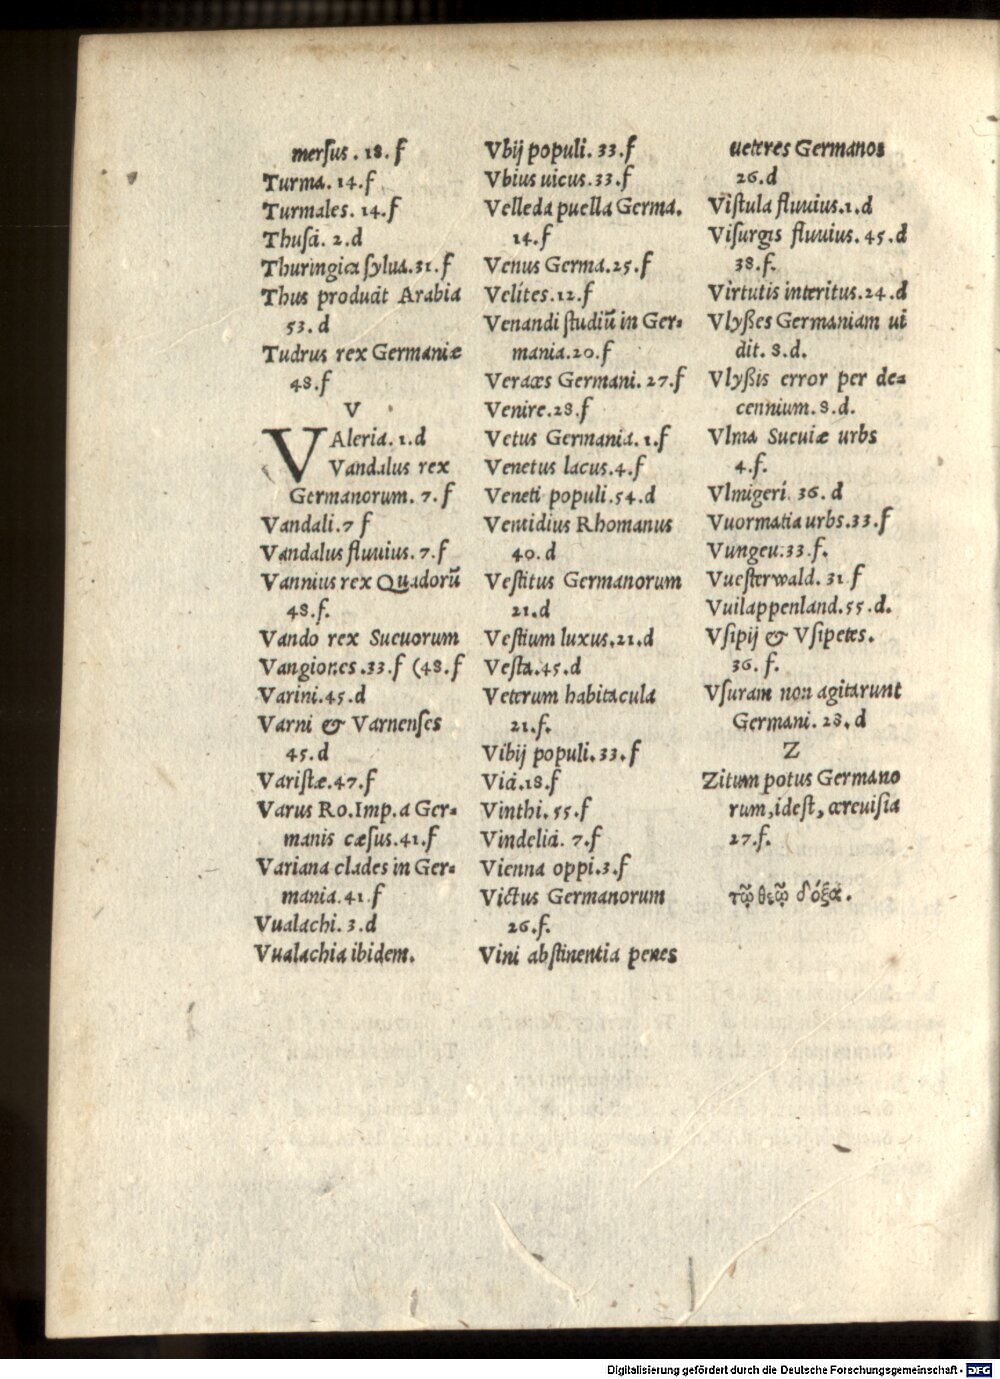 mersus. 18. f
Turma. 14. f
Turmales. 14. f
Thusci. 2. d
Thuringica sylua. 31. f
Thus producit Arabia
53. d
Tudrus rex Germaniæ
48. f
V
VAleria. 1. d
Vandalus rex
Germanorum. 7. f
Vandali. 7 f
Vandalus fluuius. 7. f
Vannius rex Quadorũ
48. f.
Vando rex Sueuorum
Vangiones. 33. f (48. f
Varini. 45. d
Varni & Varnenses
45. d
Varistæ. 47. f
Varus Ro. Imp. a Ger=
manis cæsus. 41. f
Variana clades in Ger=
mania. 41. f
Vualachi. 3. d
Vualachia ibidem.
Vbij populi. 33. f
Vbius uicus. 33. f
Velleda puella Germa.
14. f
Venus Germa. 25. f
Velites. 12. f
Venandi studiũ in Ger=
mania. 20. f
Veraces Germani. 27. f
Venire. 28. f
Vetus Germania. 1. f
Venetus lacus. 4. f
Veneti populi. 54. d
Ventidius Rhomanus
40. d
Vestitus Germanorum
21. d
Vestium luxus. 21. d
Vesta. 45. d
Veterum habitacula
21. f.
Vibij populi. 33. f
Vici. 18. f
Vinthi. 55. f
Vindelici. 7. f
Vienna oppi. 3. f
Victus Germanorum
26. f.
Vini abstinentia penes
ueteres Germanos
26. d
Vistula fluuius. 1. d
Visurgis fluuius. 45. d
38. f.
Virtutis interitus. 24. d
Vlysses Germaniam ui
dit. 8. d.
Vlyssis error per de=
cennium. 8. d.
Vlma Sueuiæ urbs
4. f.
Vlmigeri. 36. d
Vuormatia urbs. 33. f
Vungeu. 33. f.
Vuesterwald. 31 f
Vuilappenland. 55. d.
Vsipij & Vsipetes.
36. f.
Vsuram non agitarunt
Germani. 28. d
Z
Zitum potus Germano
rum, idest, cereuisia
27. f.
τῷ θεῷ δόξα.
Digitalisierung gefördert durch die Deutsche Forschungsgemeinschaft - DFG